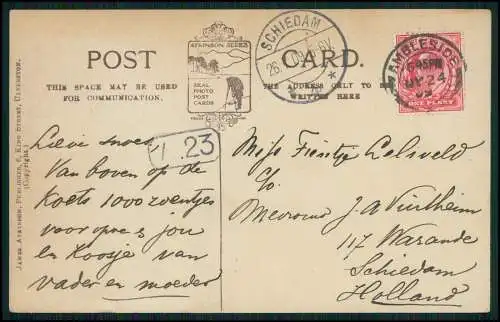 POST
CARD.
ATKINSON SERIES
REAL PHOTO POST CARDS
THIS SPACE MAY BE USED
FOR COMMUNICATION.
THE ADDRESS ONLY TO
WRITTEN HERE
SCHIEDAM
AMBLESIDE
645PM
MY 24
ONE PENNY
JAMES ATKINSON, PUBLISHER, 6, KING STREET, ULVERSTON.
(Copyright.)
1.23
Lieve snoes
Van boven op de
Koets 1000 zoentjes
voor opoe & jou
en Koosje van
vader en moeder
Miss
c/o
Mevrouw J. A
117 Warande
Schiedam
Holland